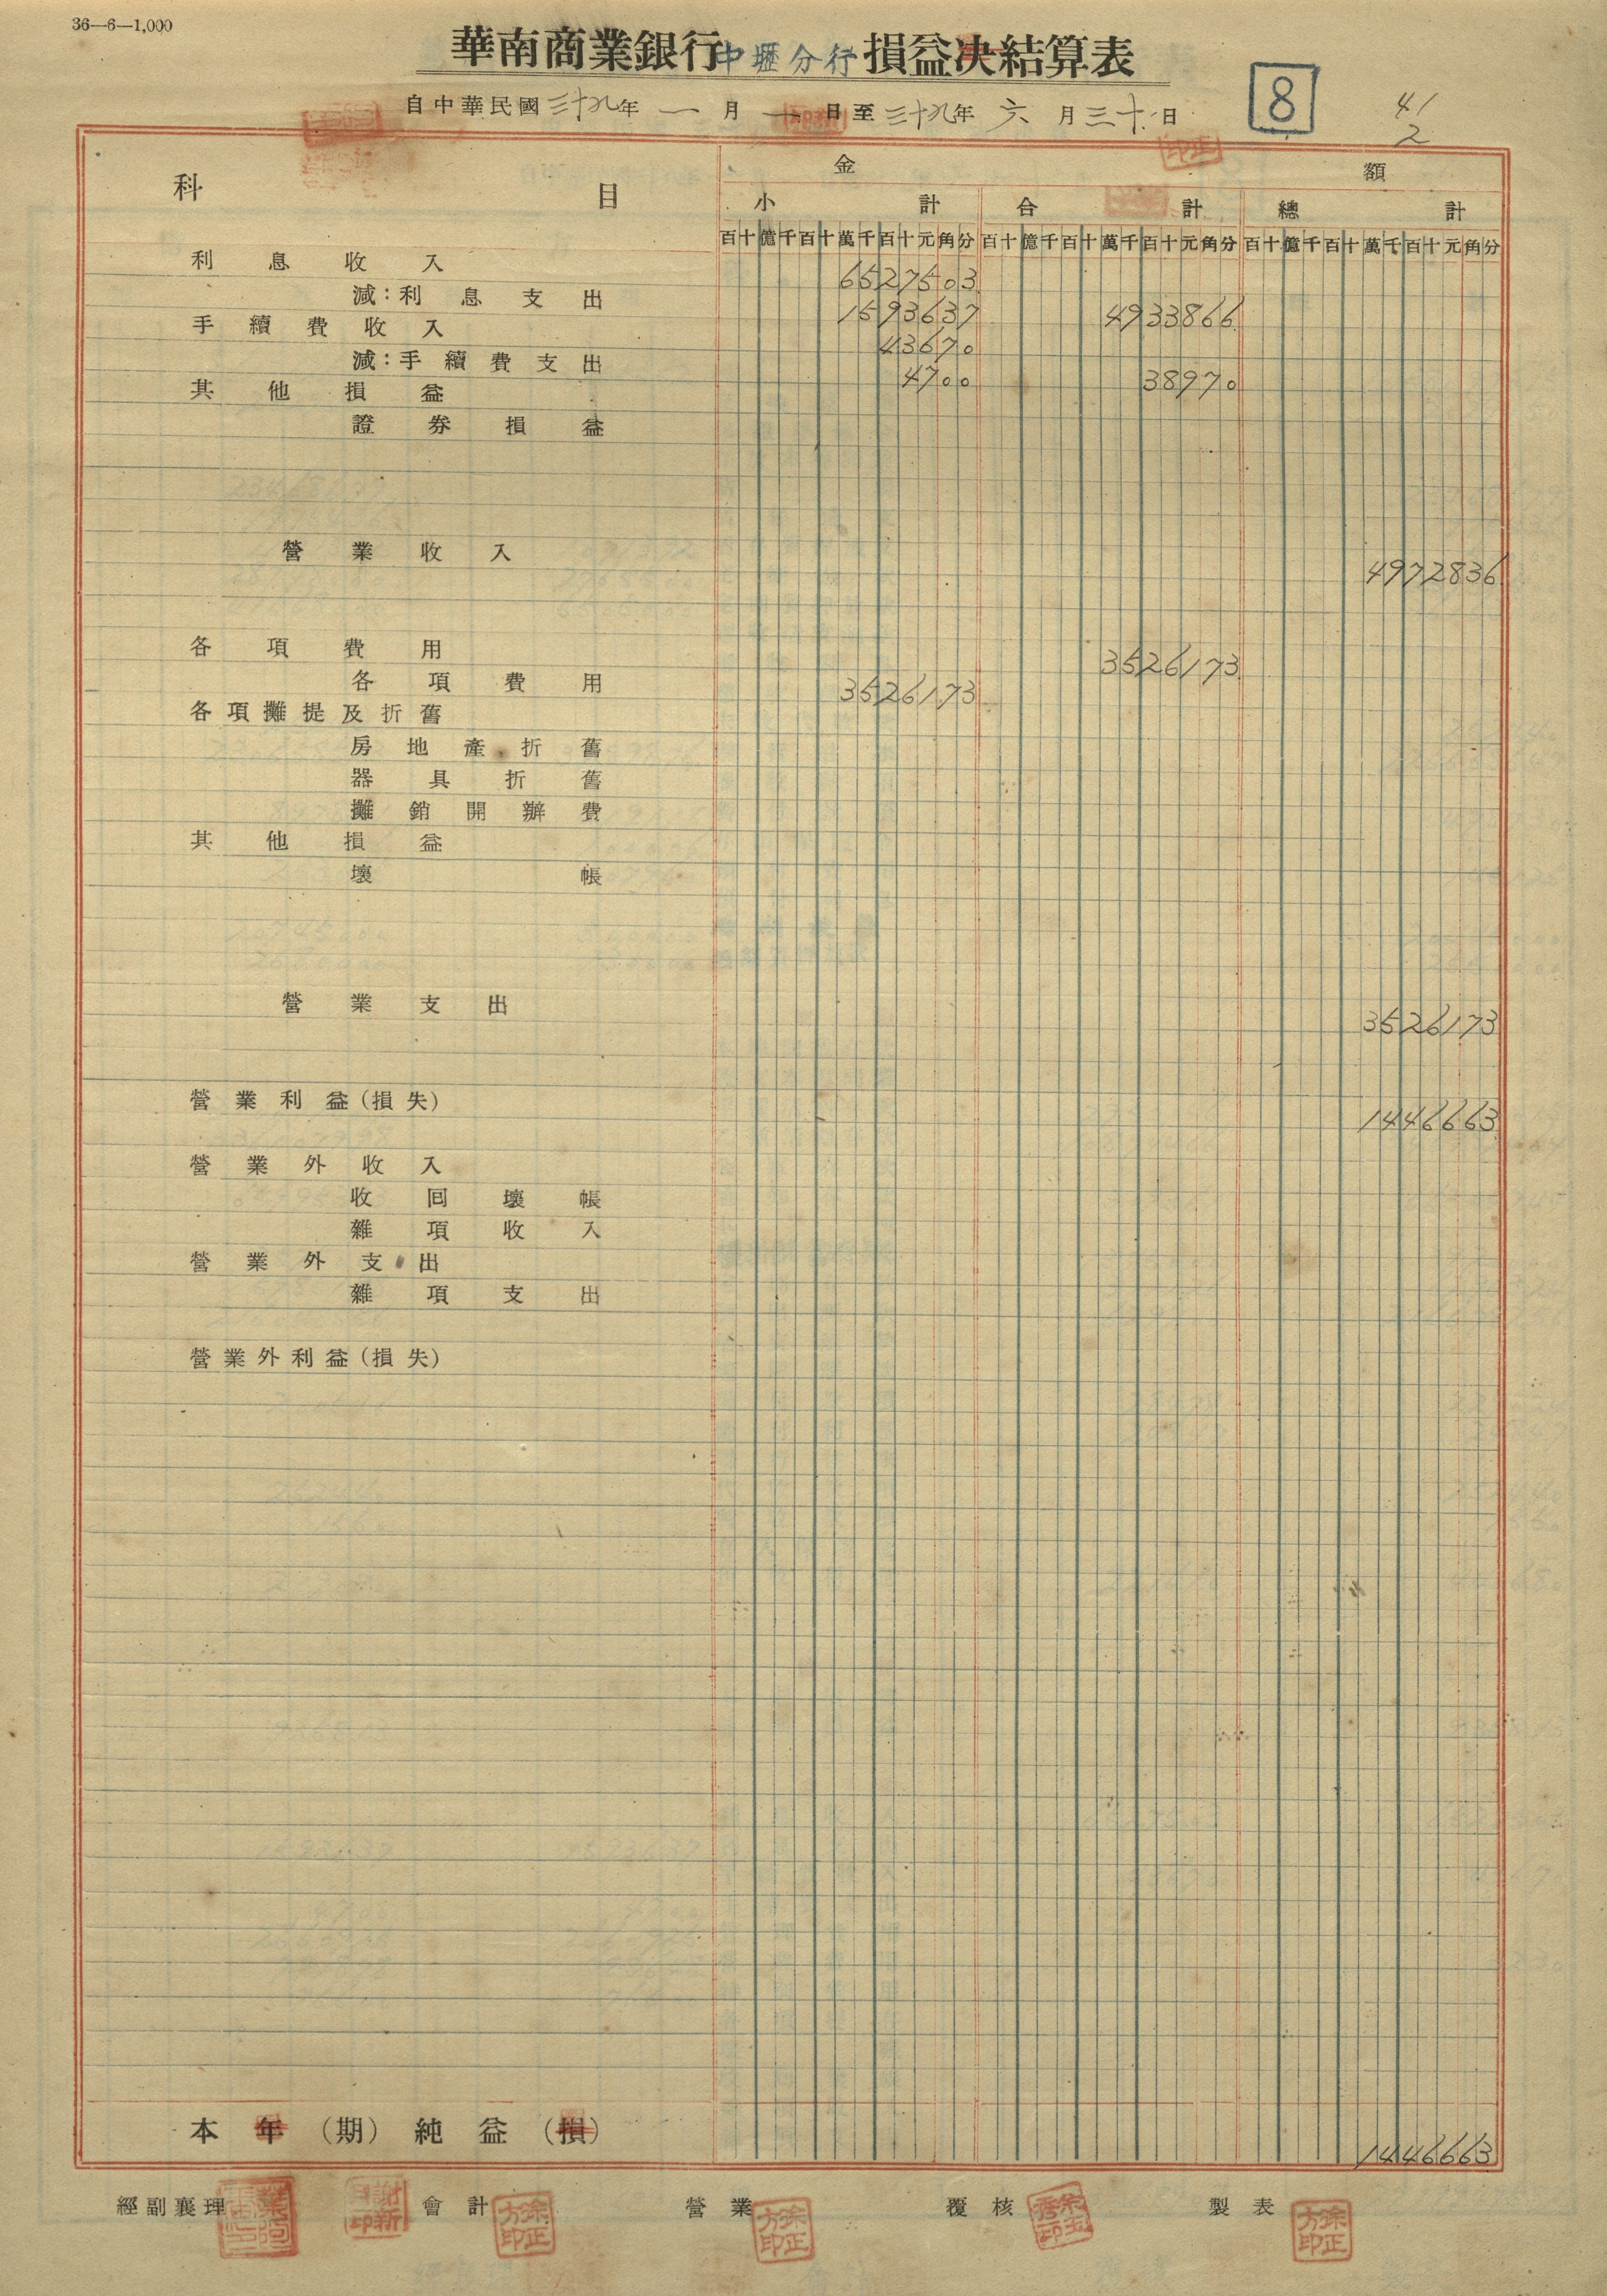 36—6—1,000
華南商業銀行中壢分行損益決結算表
自中華民國三十九年一月一日至三十九年六月三十日
8
41
2
科目 金額
小計 合計 總計
百十億千百十萬千百十元角分 百十億千百十萬千百十元角分 百十億千百十萬千百十元角分
利息收入 6527503
減:利息支出 1593637 4933866
手續費收入 43670
減:手續費支出 4700 38970
其他損益
證券損益
營業收入 4972836
各項費用 3526173
各項費用 3526173
各項攤提及折舊
房地產折舊
器具折舊
攤銷開辦費
其他損益
壞帳
營業支出 3526173
營業利益(損失) 1446663
營業外收入
收回壞帳
雜項收入
營業外支出
雜項支出
營業外利益(損失)
本年(期)純益(損) 1446663
經副襄理 會計 營業 覆核 製表